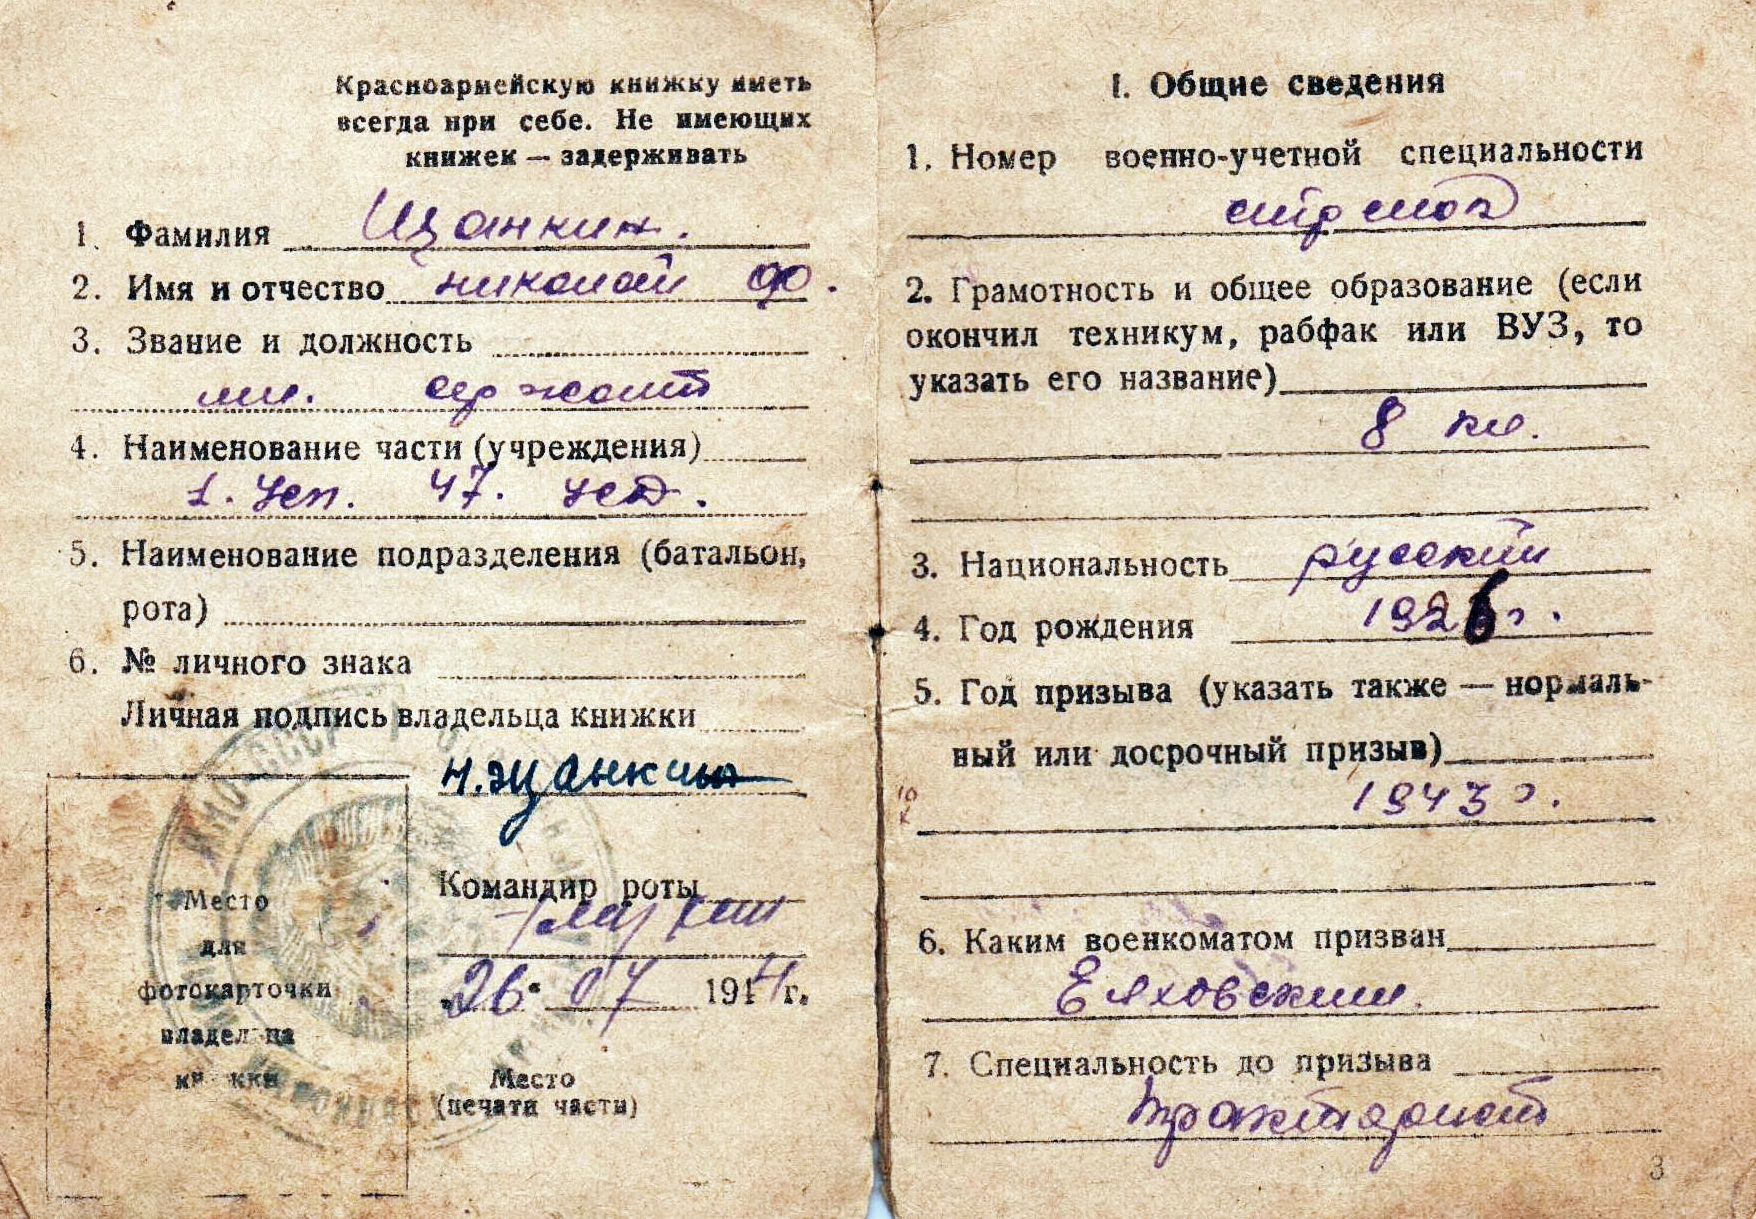 Красноармейскую книжку иметь
всегда при себе. Не имеющих
книжек — задерживать
1. Фамилия Щанкин.
2. Имя и отчество Николай Ф.
3. Звание и должность
мл. сержант
4. Наименование части (учреждения)
1. усп. 47. усд.
5. Наименование подразделения (батальон,
рота)
6. № личного знака
Личная подпись владельца книжки
Место
для
фотокарточки
владельца
книжки
Командир роты
„26“ 07 1944 г.
Место
(печати части)
I. Общие сведения
1. Номер военно-учетной специальности
стрелок
2. Грамотность и общее образование (если
окончил техникум, рабфак или ВУЗ, то
указать его название)
8 кл.
3. Национальность русский
4. Год рождения 1926 г.
5. Год призыва (указать также — нормаль-
ный или досрочный призыв)
1943 г.
6. Каким военкоматом призван
Еляховским.
7. Специальность до призыва
тракторист
3